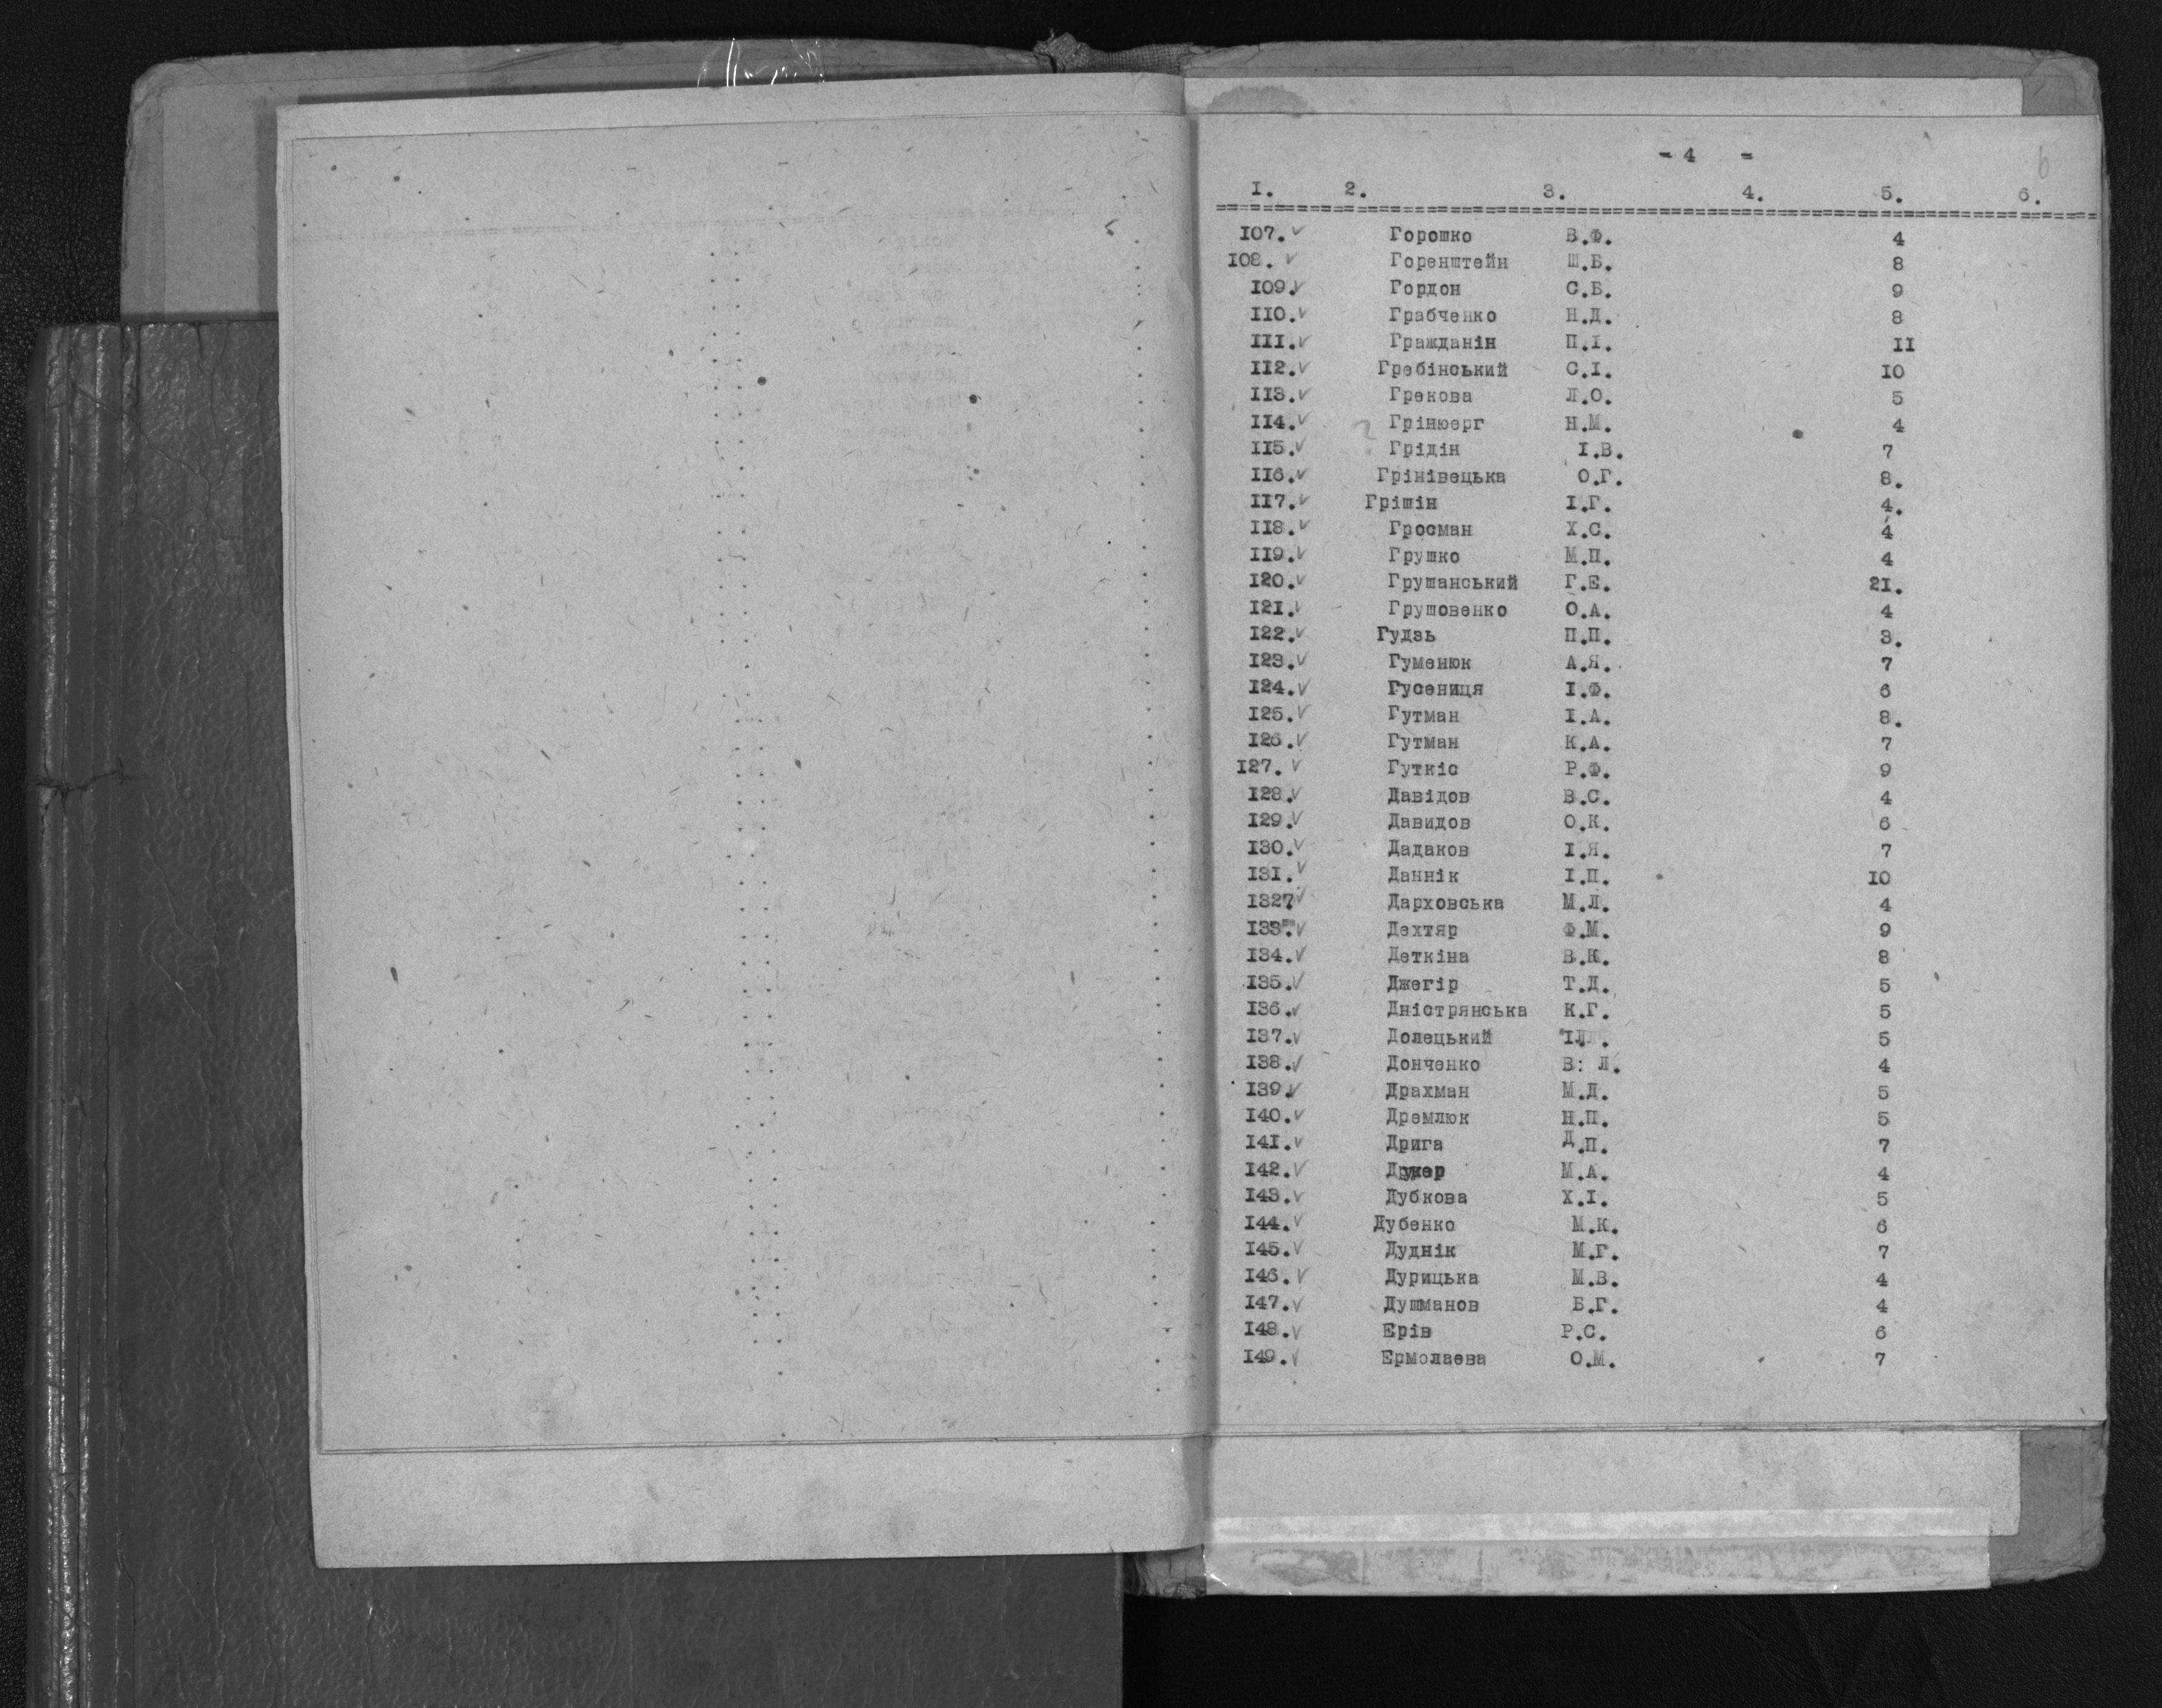 - 4 -
6
I. 2. 3. 4. 5. 6.
I07. Горошко В.Ф. 4
I08. Горенштейн Ш.Б. 8
I09. Гордон С.Б. 9
II0. Грабченко Н.Д. 8
III. Гражданін П.І. II
II2. Гребінський С.І. I0
II3. Грекова Л.О. 5
II4. Грінюерг Н.М. 4
II5. ? Грідін І.В. 7
II6. Грінівецька О.Г. 8.
II7. Грішін І.Г. 4.
II8. Гросман Х.С. 4
II9. Грушко М.П. 4
I20. Грушанський Г.Е. 2I.
I2I. Грушовенко О.А. 4
I22. Гудзь П.П. 3.
I23. Гуменюк А.Я. 7
I24. Гусениця І.Ф. 6
I25. Гутман І.А. 8.
I26. Гутман К.А. 7
I27. Гуткіс Р.Ф. 9
I28. Давідов В.С. 4
I29. Давидов О.К. 6
I30. Дадаков І.Я. 7
I3I. Даннік І.П. I0
I327 Дарховська М.Л. 4
I33. Дехтяр Ф.М. 9
I34. Деткіна В.К. 8
I35. Джегір Т.Д. 5
I36. Дністрянська К.Г. 5
I37. Долецький 5
I38. Донченко В: Л. 4
I39. Драхман М.Д. 5
I40. Дремлюк Н.П. 5
I4I. Дрига Д.П. 7
I42. Друкер М.А. 4
I43. Дубкова Х.І. 5
I44. Дубенко М.К. 6
I45. Дуднік М.Г. 7
I46. Дурицька М.В. 4
I47. Душманов Б.Г. 4
I48. Ерів Р.С. 6
I49. Ермолаева О.М. 7